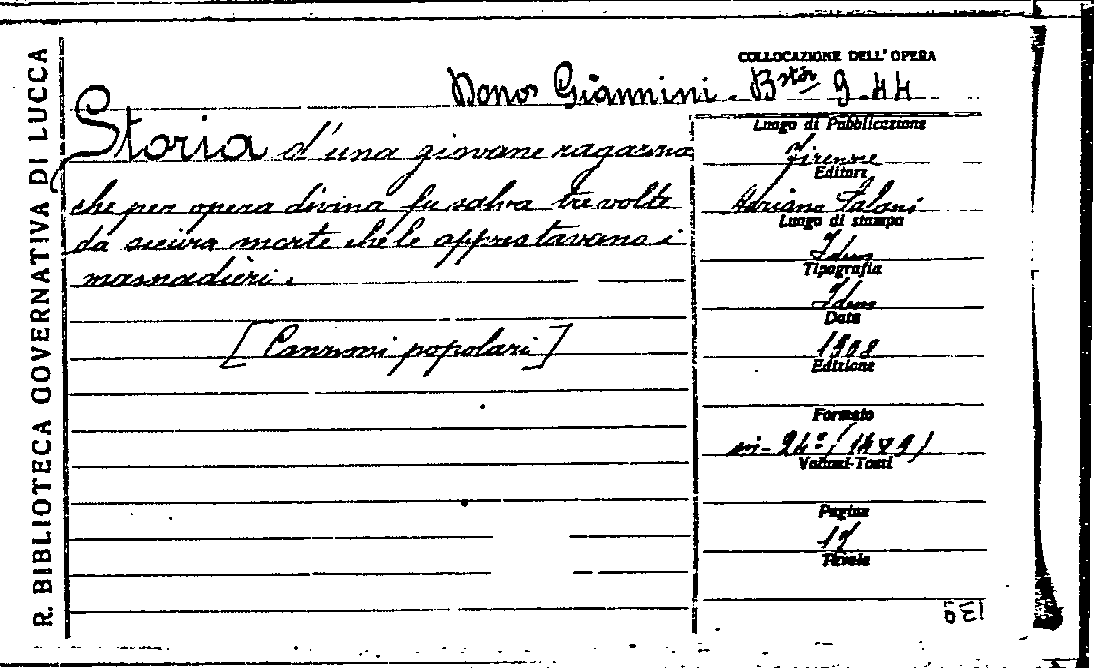 R. BIBLIOTECA GOVERNATIVA DI LUCCA
COLLOCAZIONE DELL'OPERA
Dono Giannini. Bsta 9.44
Storia d'una giovane ragazza
che per opera divina fu salva tre volte
da sicura morte che le apprestavano i
masnadieri.
[Canzoni popolari]
Luogo di Pubblicazione
Firenze
Editore
Adriano Salani
Luogo di stampa
Idem
Tipografia
Idem
Data
1908
Edizione
Formato
in-24º
Volumi-Tomi
Pagine
Tavole